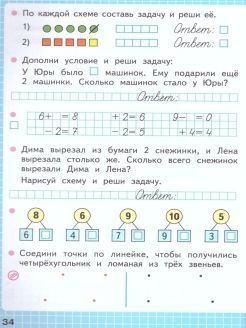 По каждой схеме составь задачу и реши её.
1) Ответ:
2) Ответ:
Дополни условие и реши задачу:
У Юры было □ машинок. Ему подарили ещё
2 машинки. Сколько машинок стало у Юры?
Ответ:
6+ = 8 +2=6 9− = 0
−2=7 −2=5 +4=4
Дима вырезал из бумаги 2 снежинки, и Лена
вырезала столько же. Сколько всего снежинок
вырезали Дима и Лена?
Нарисуй схему и реши задачу.
Ответ:
8 6 9 10 5
6 4 7 9 3
Соедини точки по линейке, чтобы получились
четырёхугольник и ломаная из трёх звеньев.
34